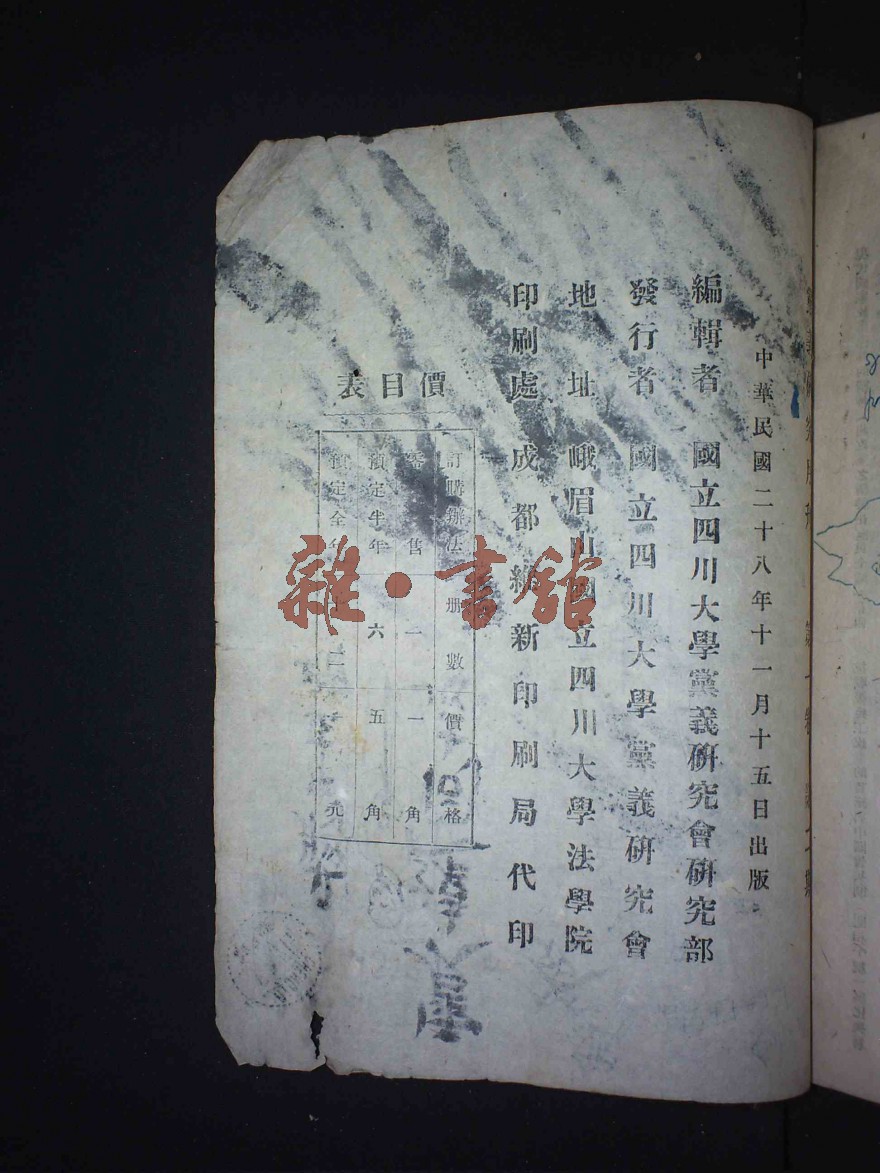 中華民國二十八年十一月十五日出版
編輯者 國立四川大學黨義研究會研究部
發行者 國立四川大學黨義研究會
地址 峨眉山國立四川大學法學院
印刷處 成都維新印刷局代印
價目表
訂購辦法 册數 價格
零售 一 一角
預定半年 六 五角
預定全年 十二 元
雜·書館